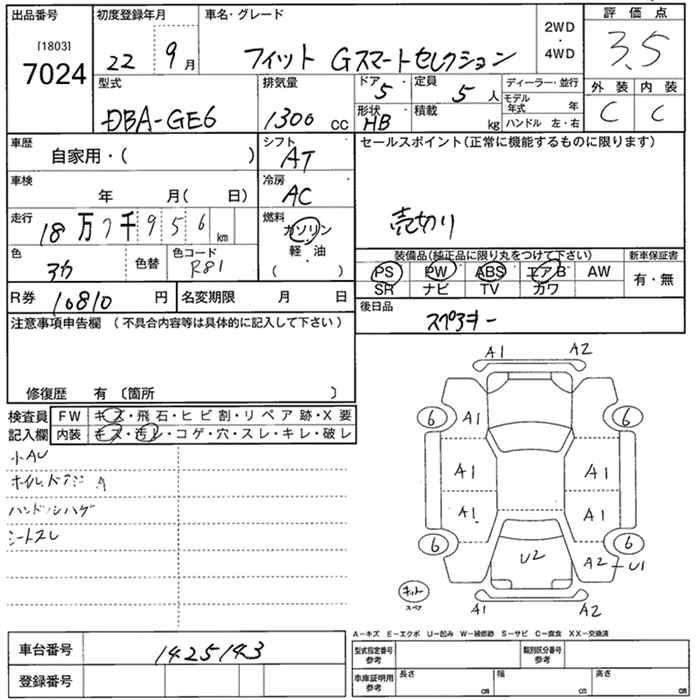 出品番号 初度登録年月 車名・グレード 2WD・4WD 評価点
[1803]
7024 22 9月 フィット Gスマートセレクション 3.5
型式 排気量 ドア 5 定員 5人 ディーラー・並行 外装 内装
DBA-GE6 1300 cc 形状 HB 積載 kg モデル年式 年 C C
ハンドル 左・右
車歴 シフト セールスポイント(正常に機能するものに限ります)
自家用・( ) AT
車検 冷房
年 月( 日) AC
走行 燃料 売切り
18万7千956km ガソリン
軽・油
( )
色 色替 色コード 装備品(純正品に限り丸をつけて下さい) 新車保証書
アカ R81 PS PW ABS エアB AW 有・無
SR ナビ TV カワ
R券 10810円 名変期限 月 日 後日品
スペアキー
注意事項申告欄 (不具合内容等は具体的に記入して下さい)
修復歴 有 〔箇所 〕
検査員 FW キズ・飛石・ヒビ割・リペア跡・X要
記入欄 内装 キズ・汚レ・コゲ・穴・スレ・キレ・破レ
小AU
ハンドルハゲ
シートスレ
A1 A2
6 A1 6
A1 A1
A1 A1
6 U2 A2 U1 6
キット
スペア A1 A2
A-キズ E-エクボ U-凹み W-補修跡 S-サビ C-腐食 XX-交換済
車台番号 1425143 型式指定番号 参考 類別区分番号 参考
登録番号 車庫証明用 参考 長さ cm 幅 cm 高さ cm